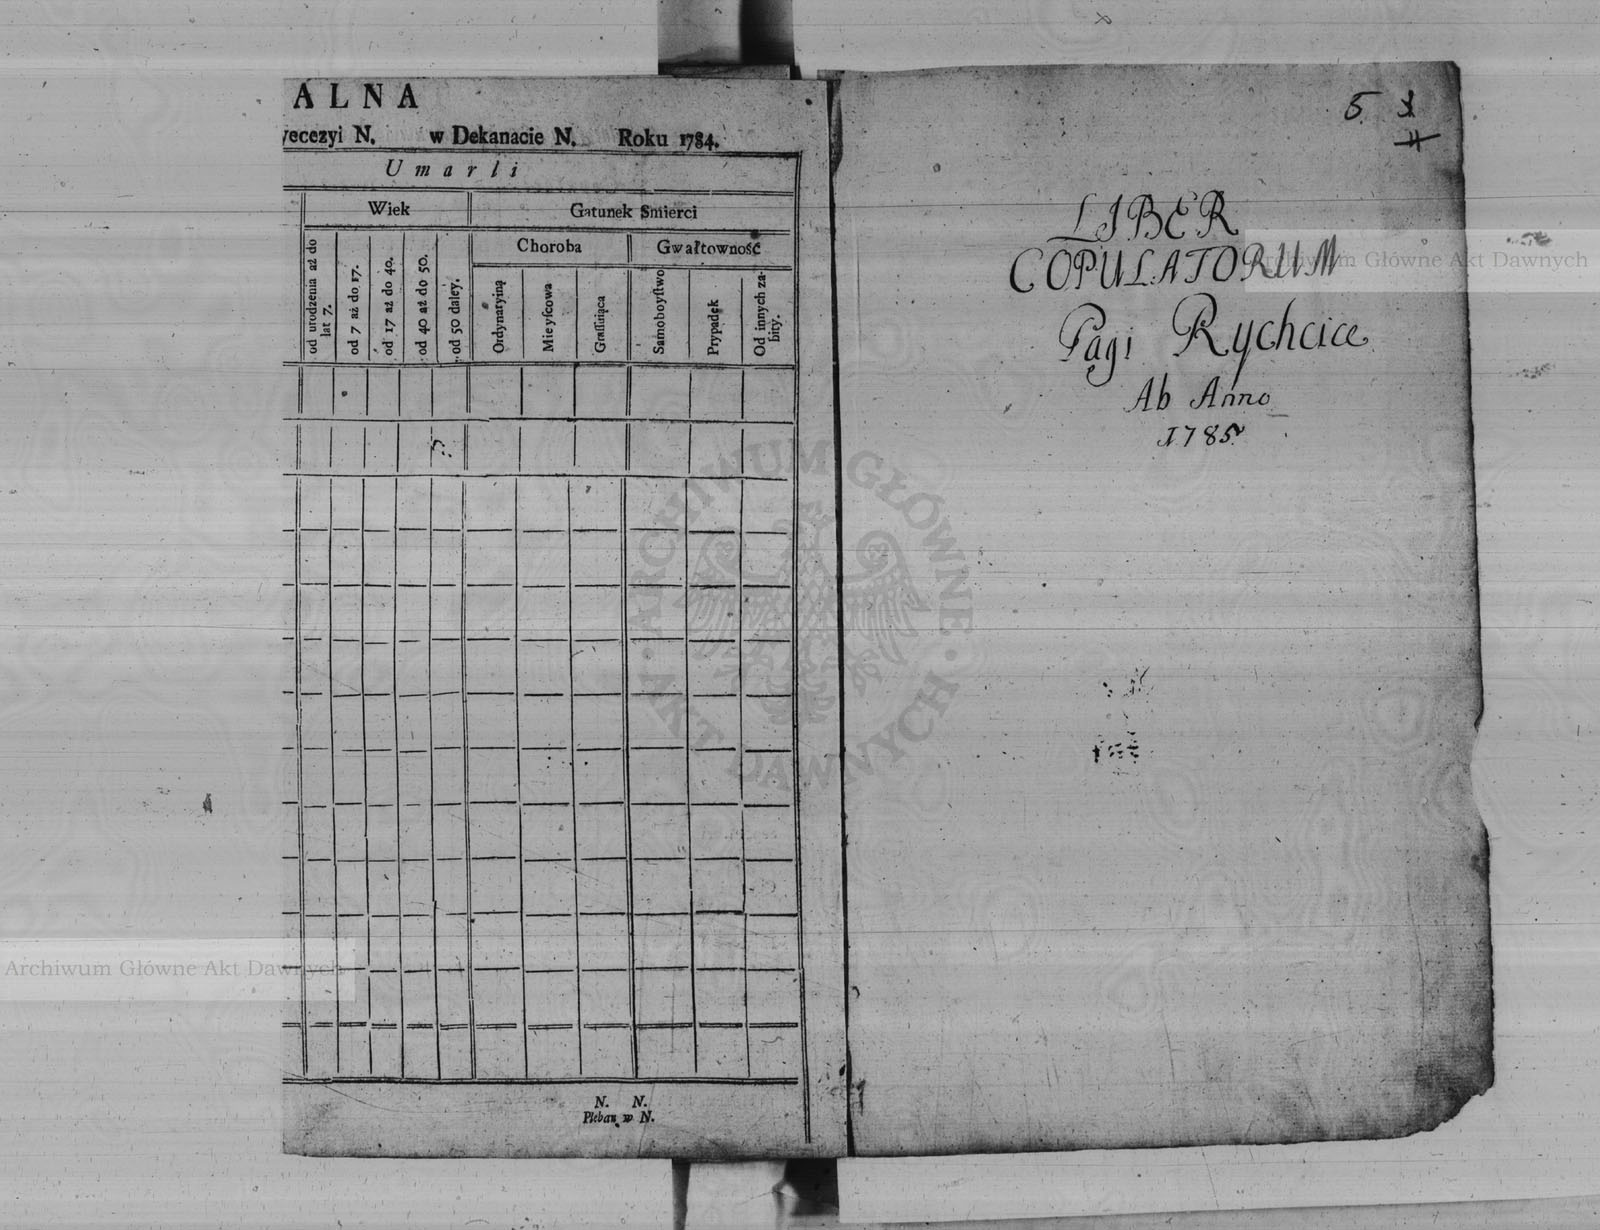 ALNA
yecezyi N. w Dekanacie N. Roku 1784.
Umarli
Wiek
Gatunek Smierci
Choroba
Gwałtowność
od urodzenia aż do lat 7.
od 7 aż do 17.
od 17 aż do 40.
od 40 aż do 50.
od 50 daley.
Ordynaryiną
Mieyſcowa
Graſſuiąca
Samoboyſtwo
Prypadek
Od innych zabity.
N. N.
Pleban w N.
5
LIBER
COPULATORUM
Pagi Rychcice
Ab Anno
1785
Archiwum Główne Akt Dawnych
ARCHIWUM GŁÓWNE
AKT DAWNYCH
Archiwum Główne Akt Dawnych